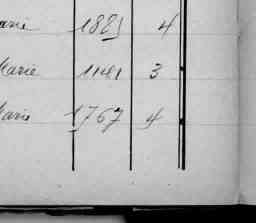 Marie 1881 4
Marie 1141 3
Marie 1767 4